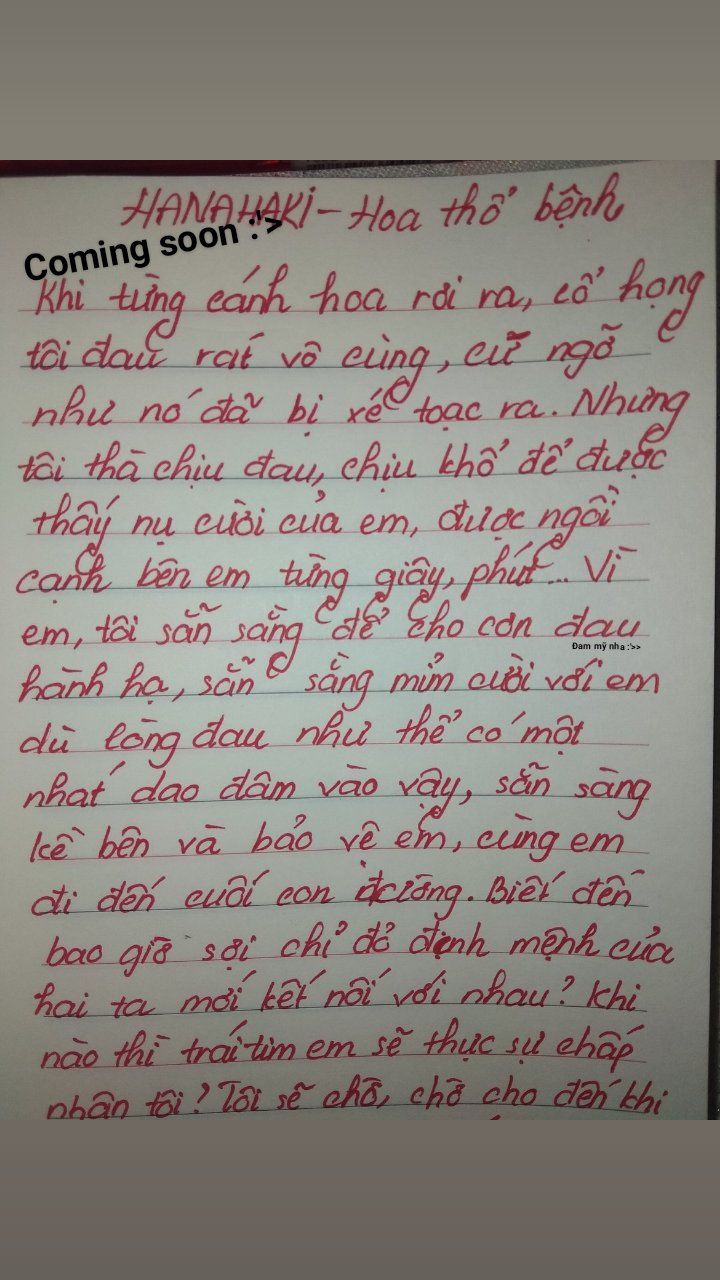 HANAHAKI - Hoa thổ bệnh
Coming soon :'>
Khi từng cánh hoa rơi ra, cổ họng
tôi đau rát vô cùng, cứ ngỡ
như nó đã bị xé toạc ra. Nhưng
tôi thà chịu đau, chịu khổ để được
thấy nụ cười của em, được ngồi
cạnh bên em từng giây, phút... Vì
em, tôi sẵn sằng để cho cơn đau
Đam mỹ nha :'>>
hành hạ, sẵn sằng mỉm cười với em
dù lòng đau như thể có một
nhát dao đâm vào vậy, sẵn sàng
kề bên và bảo vệ em, cùng em
đi đến cuối con đường. Biết đến
bao giờ sợi chỉ đỏ định mệnh của
hai ta mới kết nối với nhau? Khi
nào thì trái tim em sẽ thực sự chấp
nhận tôi? Tôi sẽ chờ, chờ cho đến khi